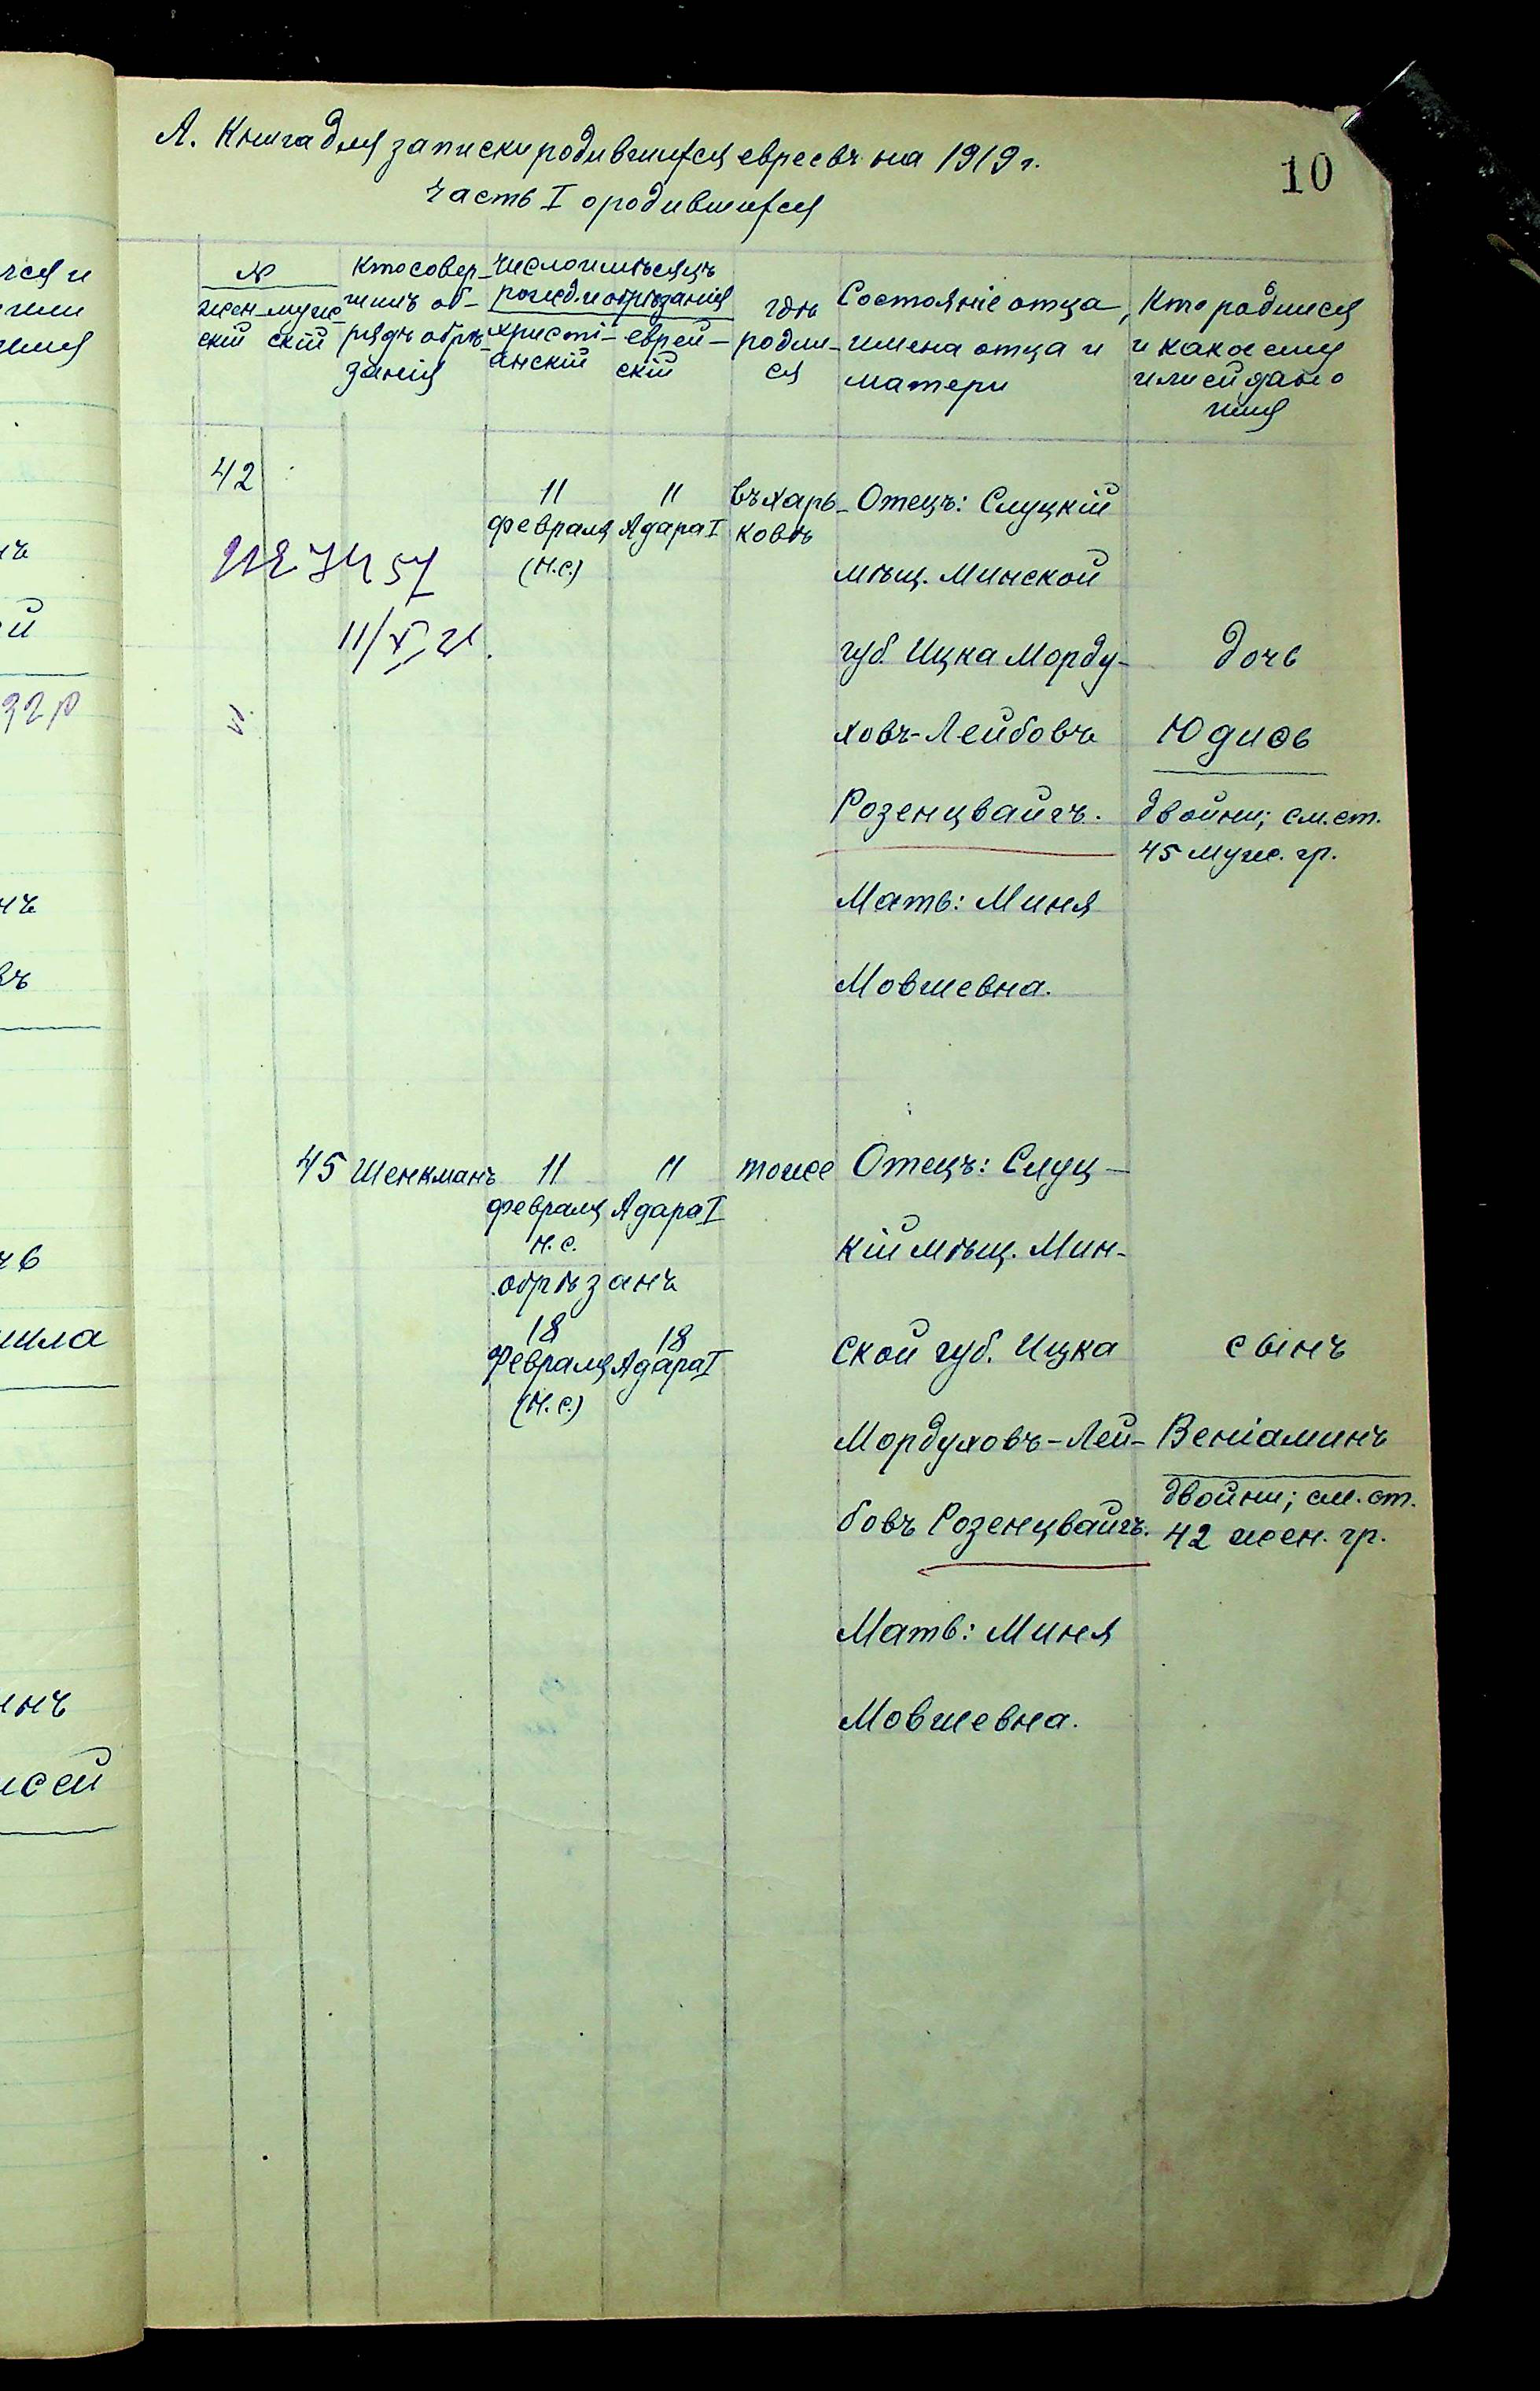 А. Книга для записки родившихся евреевъ на 1919 г.
10
Часть I о родившихся
№
жен-
ский
муже-
скій
Кто совер-
шилъ об-
рядъ обрѣ-
занія
Число и мѣсяцъ
рожд. и обрѣзанія
христі-
анскій
еврей-
скій
гдѣ
родил-
ся
Состояніе отца,
имена отца и
матери
Кто родился
и какое ему
или ей дано
имя
42
11
февраля
(н.с.)
11
Адара I
въ Харь-
ковѣ
Отецъ: Слуцкій
мѣщ. Минской
губ. Ицка Морду-
ховъ-Лейбовъ
Розенцвайгъ.
Мать: Миня
Мовшевна.
дочь
Юдиѳь
двойни; см. ст.
45 муж. гр.
45
Шенкманъ
11
февраля
н.с.
11
Адара I
обрѣзанъ
18
февраля
(н.с.)
18
Адара I
тоже
Отецъ: Слуц-
кій мѣщ. Мин-
ской губ. Ицка
Мордуховъ-Лей-
бовъ Розенцвайгъ.
Мать: Миня
Мовшевна.
сынъ
Веніаминъ
двойни; см. ст.
42 жен. гр.